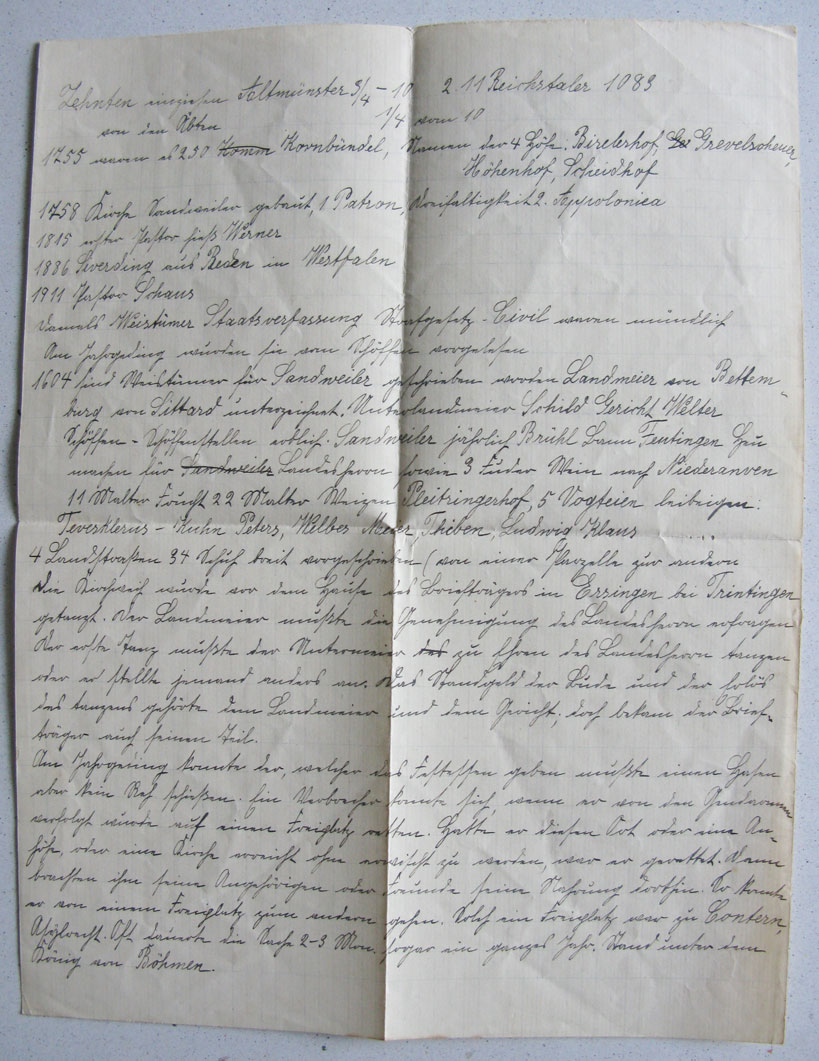 Zehnten einziehen Altmünster 3/4 – 10 2. 11 Reichstaler 1083
von den Äbten 1/4 vom 10
1755 waren es 230 Komm Kornbündel, Namen der 4 Höfe: Birelerhof, Gre Grevelscheuer,
Höhenhof, Scheidhof
1758 Kirche Sandweiler gebaut, 1 Patron, Dreifaltigkeit 2. Appolonica
1815 erster Pastor hieß Werner
1886 Severding aus Reken in Westfalen
1911 Pastor Schaus
Damals Weistümer Staatsverfassung Strafgesetz – Civil waren mündlich
Am Jahrgeding wurden sie vom Schöffen vorgelesen
1604 sind Weistümer für Sandweiler geschrieben worden Landmeier von Bettem-
burg von Sittard unterzeichnet. Unterlandmeier Schild Gericht Welter
Schöffen – Schöffenstellen erblich. Sandweiler jährlich Brühl Bann Fentingen Heu
machen für Sandweiler Landesherrn sowie 3 Fuder Wein nach Niederanven
11 Malter Frucht 22 Malter Weizen Pleitringerhof, 5 Vogteien leibeigen:
Teversklerus – Kuhn Peters, Welbes Meier, Thiben, Ludwig Klaus
4 Landstraßen 34 Schuh breit vorgeschrieben (von einer Parzelle zur andern
Die Kirchweih wurde vor dem Hause des Briefträgers in Erzingen bei Trintingen
getanzt. Der Landmeier mußte die Genehmigung des Landesherrn erfragen
Der erste Tanz mußte der Untermeier das zu Ehren des Landesherrn tanzen
oder er stellte jemand anders an. Das Standgeld der Bude und der Erlös
des tanzens gehörte dem Landmeier und dem Gericht; doch bekam der Brief-
träger auch seinen Teil.
Am Jahrgeding konnte der, welcher das Festessen geben mußte einen Hasen
aber kein Reh schießen. Ein Verbrecher konnte sich, wenn er von den Gendarmen
verfolgt wurde auf einen Freiplatz retten. Hatte er diesen Ort oder eine An-
höhe, oder eine Kirche erreicht ohne erwischt zu werden, war er gerettet. Dann
brachten ihm seine Angehörigen oder Freunde seine Nahrung dorthin. So konnte
er von einem Freiplatz zum andern gehen. Solch ein Freiplatz war zu Contern,
Asylrecht. Oft dauerte die Sache 2–3 Mon. sogar ein ganzes Jahr. Stand unter dem
König von Böhmen.